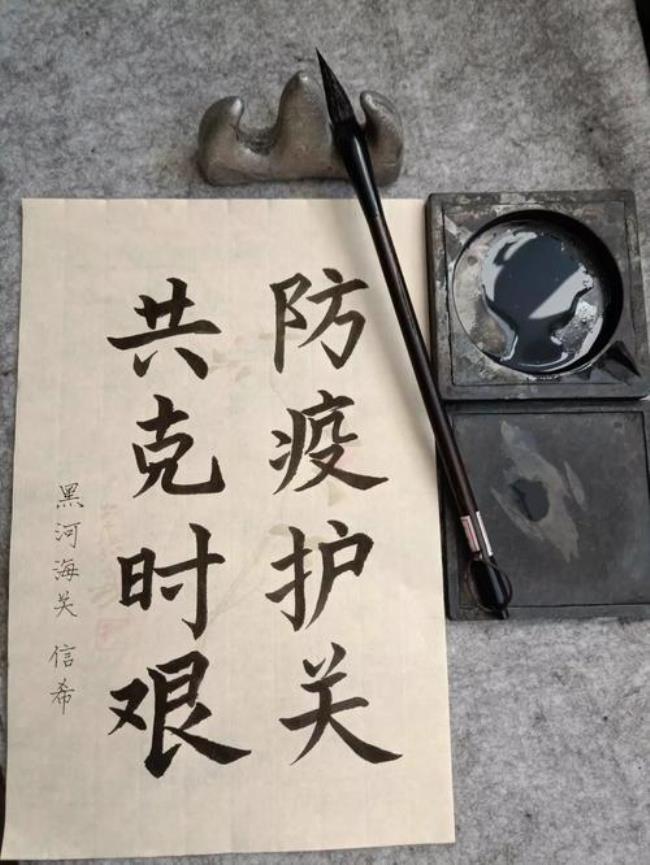 防疫护关
共克时艰
黑河海关 信希